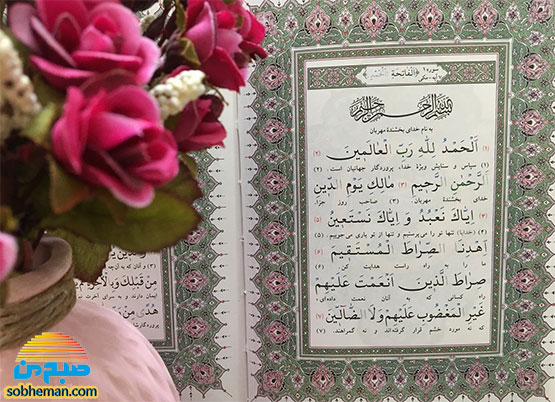 سورهٔ ۱ «الفاتحة»
بسم الله الرحمن الرحیم
به نام خدای بخشندهٔ مهربان
اَلْحَمْدُ لِلّٰهِ رَبِّ الْعالَمينَ ﴿۲﴾
سپاس و ستایش ویژهٔ خدا، پروردگار جهانیان است . (۲)
اَلرَّحْمٰنِ الرَّحيمِ ﴿۳﴾ مالِكِ يَوْمِ الدّينِ
خدای بخشندهٔ مهربان. (۳) صاحب روز جزا.
﴿۴﴾ اِيّاكَ نَعْبُدُ وَ اِيّاكَ نَسْتَعينُ ﴿۵﴾
(۴) (خدایا) تنها تو را می‌پرستیم و تنها از تو یاری می‌جوییم. (۵)
اِهْدِنَا الصِّراطَ الْمُسْتَقيمَ ﴿۶﴾
ما را به راه راست هدایت کن (۶)
صِراطَ الَّذينَ اَنْعَمْتَ عَلَيْهِمْ
راه کسانی که به آنان نعمت داده‌ای،
غَيْرِ الْمَغْضُوبِ عَلَيْهِمْ وَلَا الضّالّينَ ﴿۷﴾
که نه مورد خشم قرار گرفته‌اند و نه گمراهند. (۷)
صبح من
sobheman.com